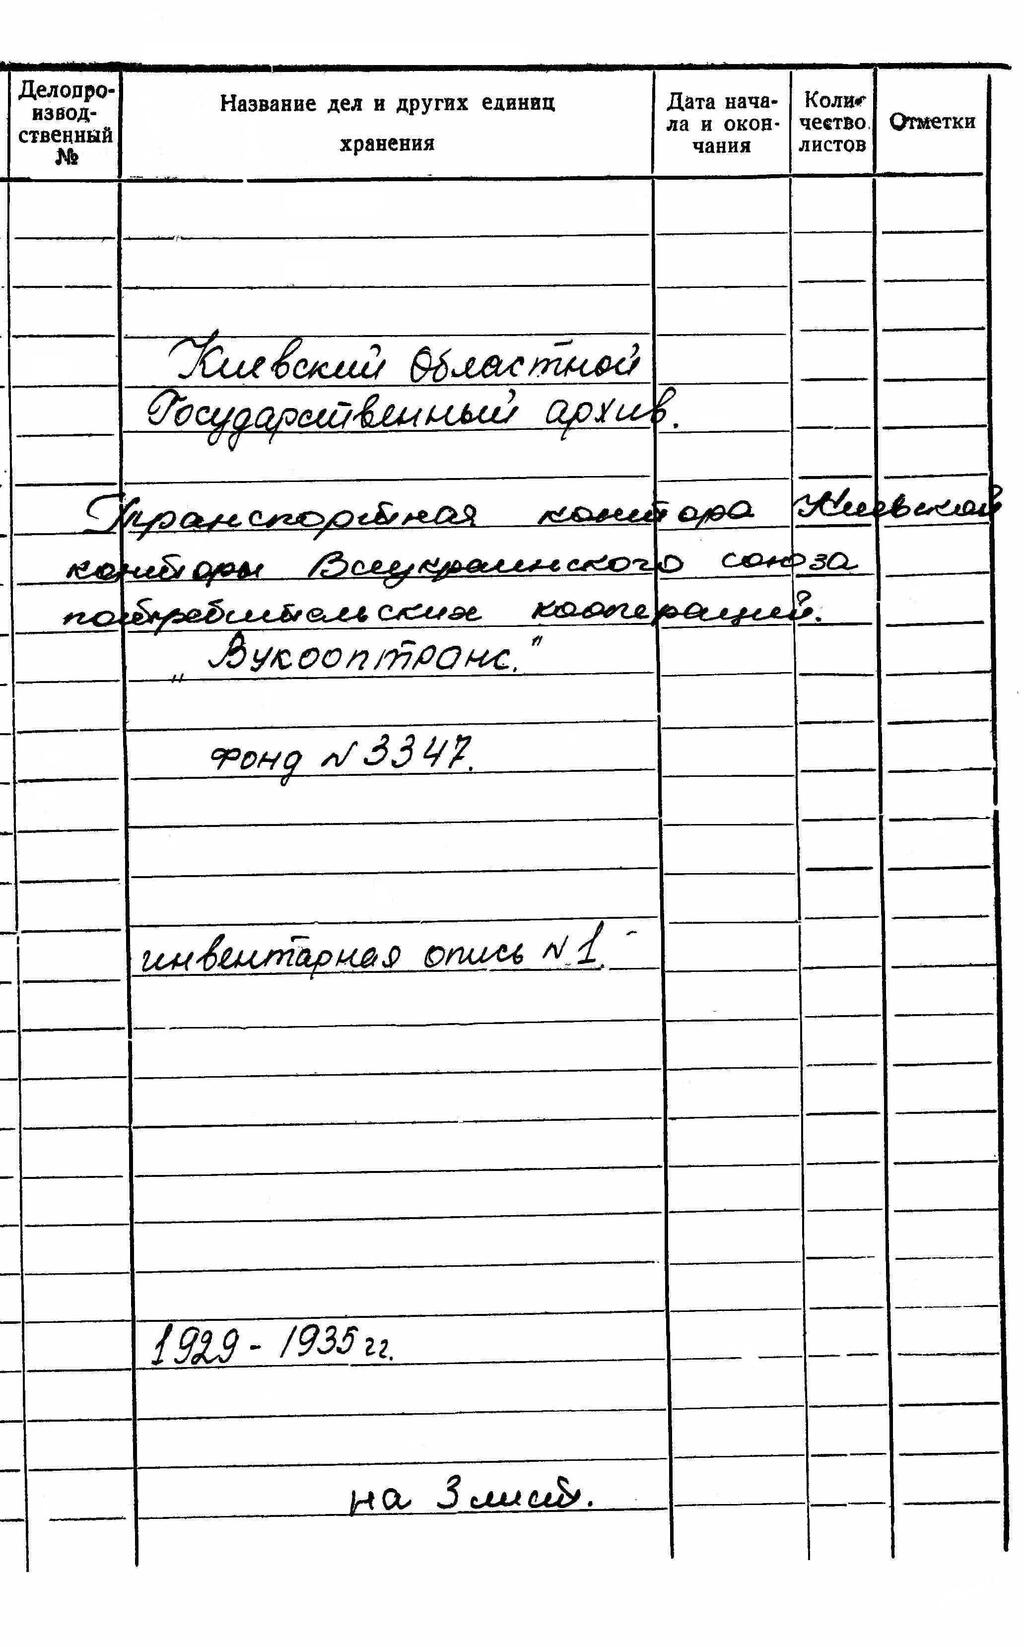 Делопро-
извод-
ственный
№
Название дел и других единиц
хранения
Дата нача-
ла и окон-
чания
Коли-
чество
листов
Отметки
Киевский Областной
Государственный архив.
Транспортная контора Киевской
конторы Всеукраинского союза
потребительских коопераций.
„Вукооптранс."
Фонд N 3347.
инвентарная опись N 1.
1929 - 1935 гг.
на 3 лист.